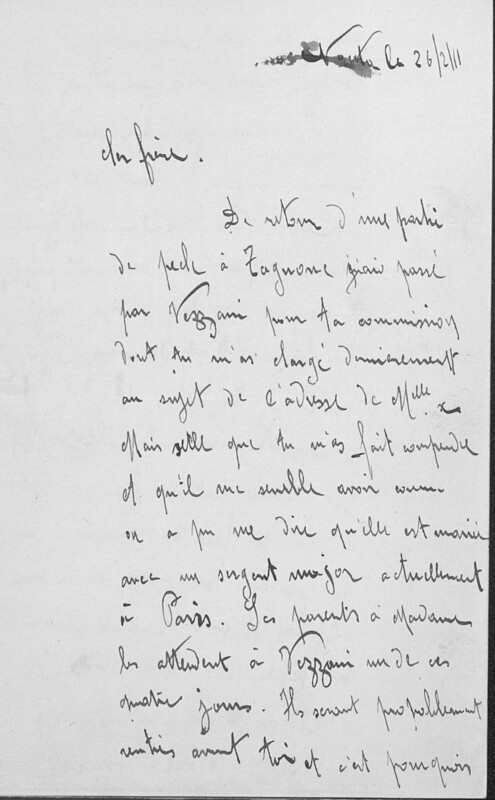 le 26/2/11
cher frère.
De retour d'une partie
de peche à Tagnone j'ai passé
par Vezzani pour ta commission
dont tu m'as chargé dernierement
au sujet de l'adresse de Melle x
Mais celle que tu m'as fait comprendre
et qu'il me semble avoir connu
on a pu me dire qu'elle est mariée
avec un sergent major actuellement
à Paris. Les parents à Madame
les attendent à Vezzani un de ces
quatre jours. Ils seront propablement
rentrés avant toi et c'est pourquoi